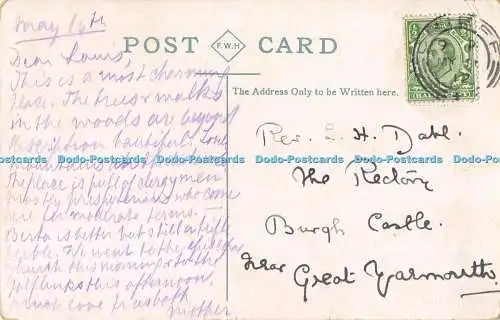 May 16th
POST F.W.H CARD
Dear Louis,
This is a most charming
place. The trees & walks
in the woods are beyond
description beautiful.
mountains
The place is full of clergymen
mostly presbyterians who come
here for moderate terms.
Berta is better but still
We went to the
church this morning & to the
golf links this afternoon.
much love from both
Mother
The Address Only to be Written here.
Rev. L. H. Dahl.
The Rectory
Burgh Castle.
Near Great Yarmouth
Dodo-Postcards Dodo-Postcards Dodo-Postcards Dodo-Postcards Dodo-Postcards Dodo-Postcards